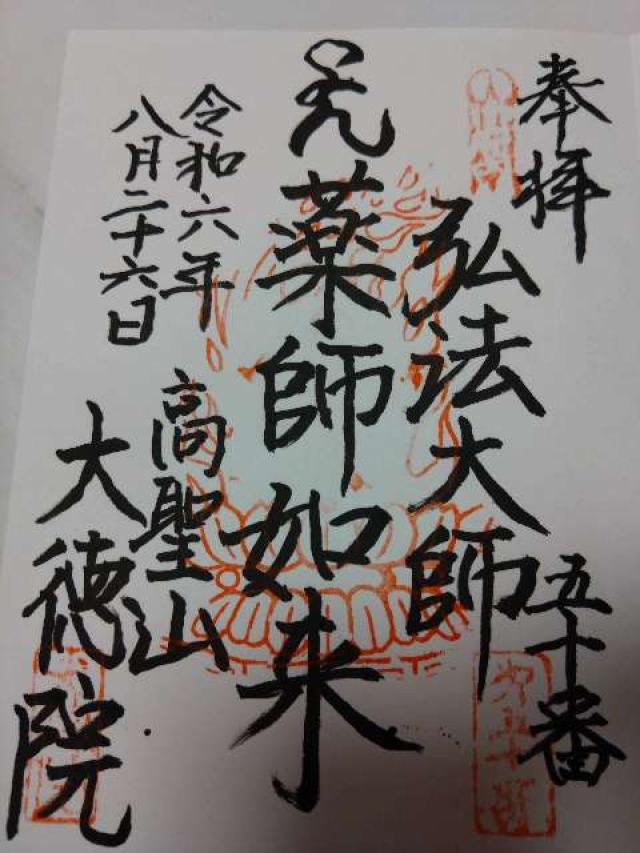 奉拝
五十番
弘法大師
薬師如来
令和六年
八月二十六日
高聖山
大徳院